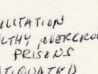 ILITATION
LTHY, OVERCROW
PRISONS